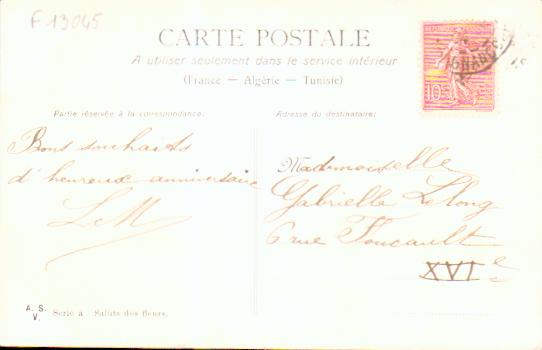 F 13045
CARTE POSTALE
A utiliser seulement dans le service intérieur
(France — Algérie — Tunisie)
Partie réservée à la correspondance:
Adresse du destinataire:
10
Bons souhaits
d'heureux anniversaire
L M
Mademoiselle
Gabrielle Lelong
6 rue Foucault
XVIe
A. S.
V.
Serie a Saluts des fleurs.